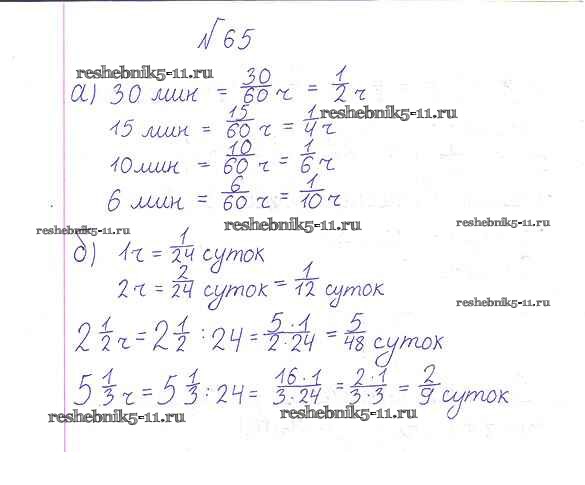 №65
reshebnik5-11.ru
а) 30 мин = 30/60 ч = 1/2 ч
reshebnik5-11.ru
15 мин = 15/60 ч = 1/4 ч
10 мин = 10/60 ч = 1/6 ч
6 мин = 6/60 ч = 1/10 ч
reshebnik5-11.ru
reshebnik5-11.ru
reshebnik5-11.ru
б) 1 ч = 1/24 суток
2 ч = 2/24 суток = 1/12 суток
reshebnik5-11.ru
2 1/2 ч = 2 1/2 : 24 = 5·1/2·24 = 5/48 суток
5 1/3 ч = 5 1/3 : 24 = 16·1/3·24 = 2·1/3·3 = 2/9 суток
reshebnik5-11.ru
reshebnik5-11.ru